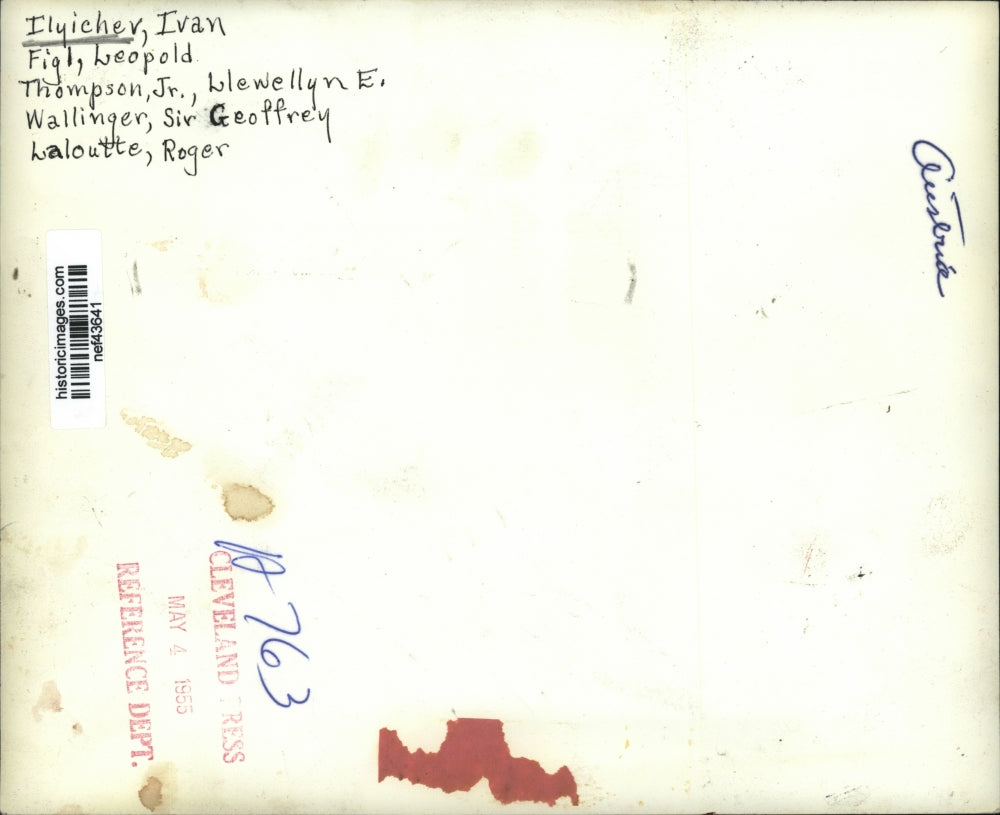 Ilyichev, Ivan
Figl, Leopold
Thompson, Jr., Llewellyn E.
Wallinger, Sir Geoffrey
Laloutte, Roger
Austria
historicimages.com
nef43641
CLEVELAND PRESS
MAY 4 1955
REFERENCE DEPT.
763